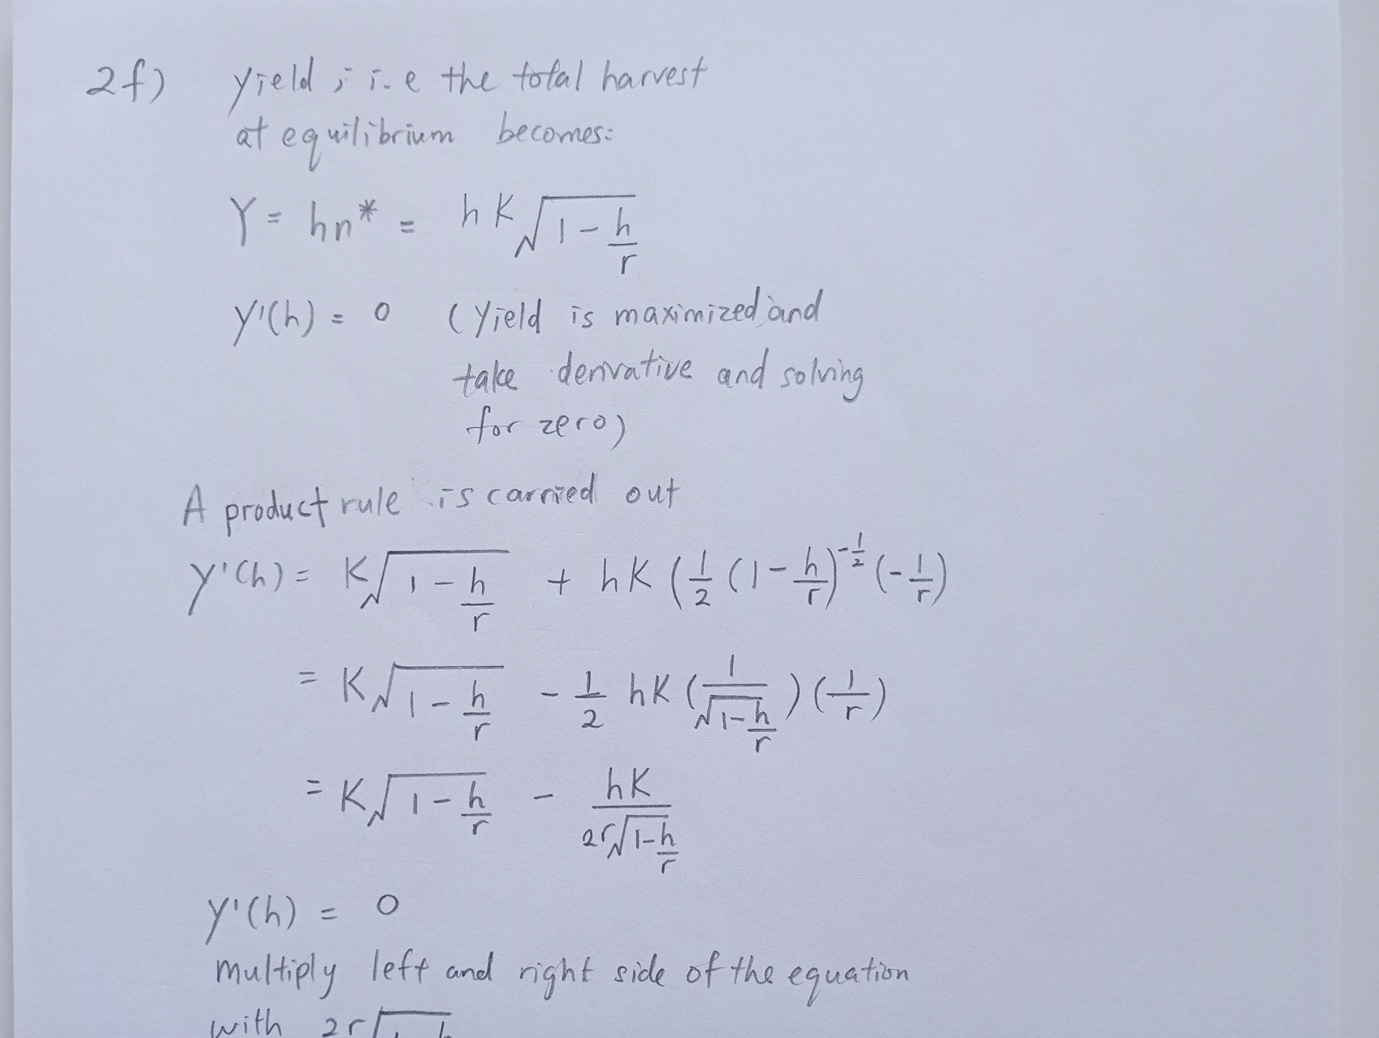 2f) Yield ; i.e the total harvest
at equilibrium becomes:
Y = hn* = hK√(1-h/r)
Y'(h) = 0 (Yield is maximized and
take derivative and solving
for zero)
A product rule is carried out
Y'(h) = K√(1-h/r) + hK(1/2(1-h/r)^(-1/2)(-1/r)
= K√(1-h/r) - 1/2 hK(1/√(1-h/r))(1/r)
= K√(1-h/r) - hK/(2r√(1-h/r))
Y'(h) = 0
multiply left and right side of the equation
with 2r√